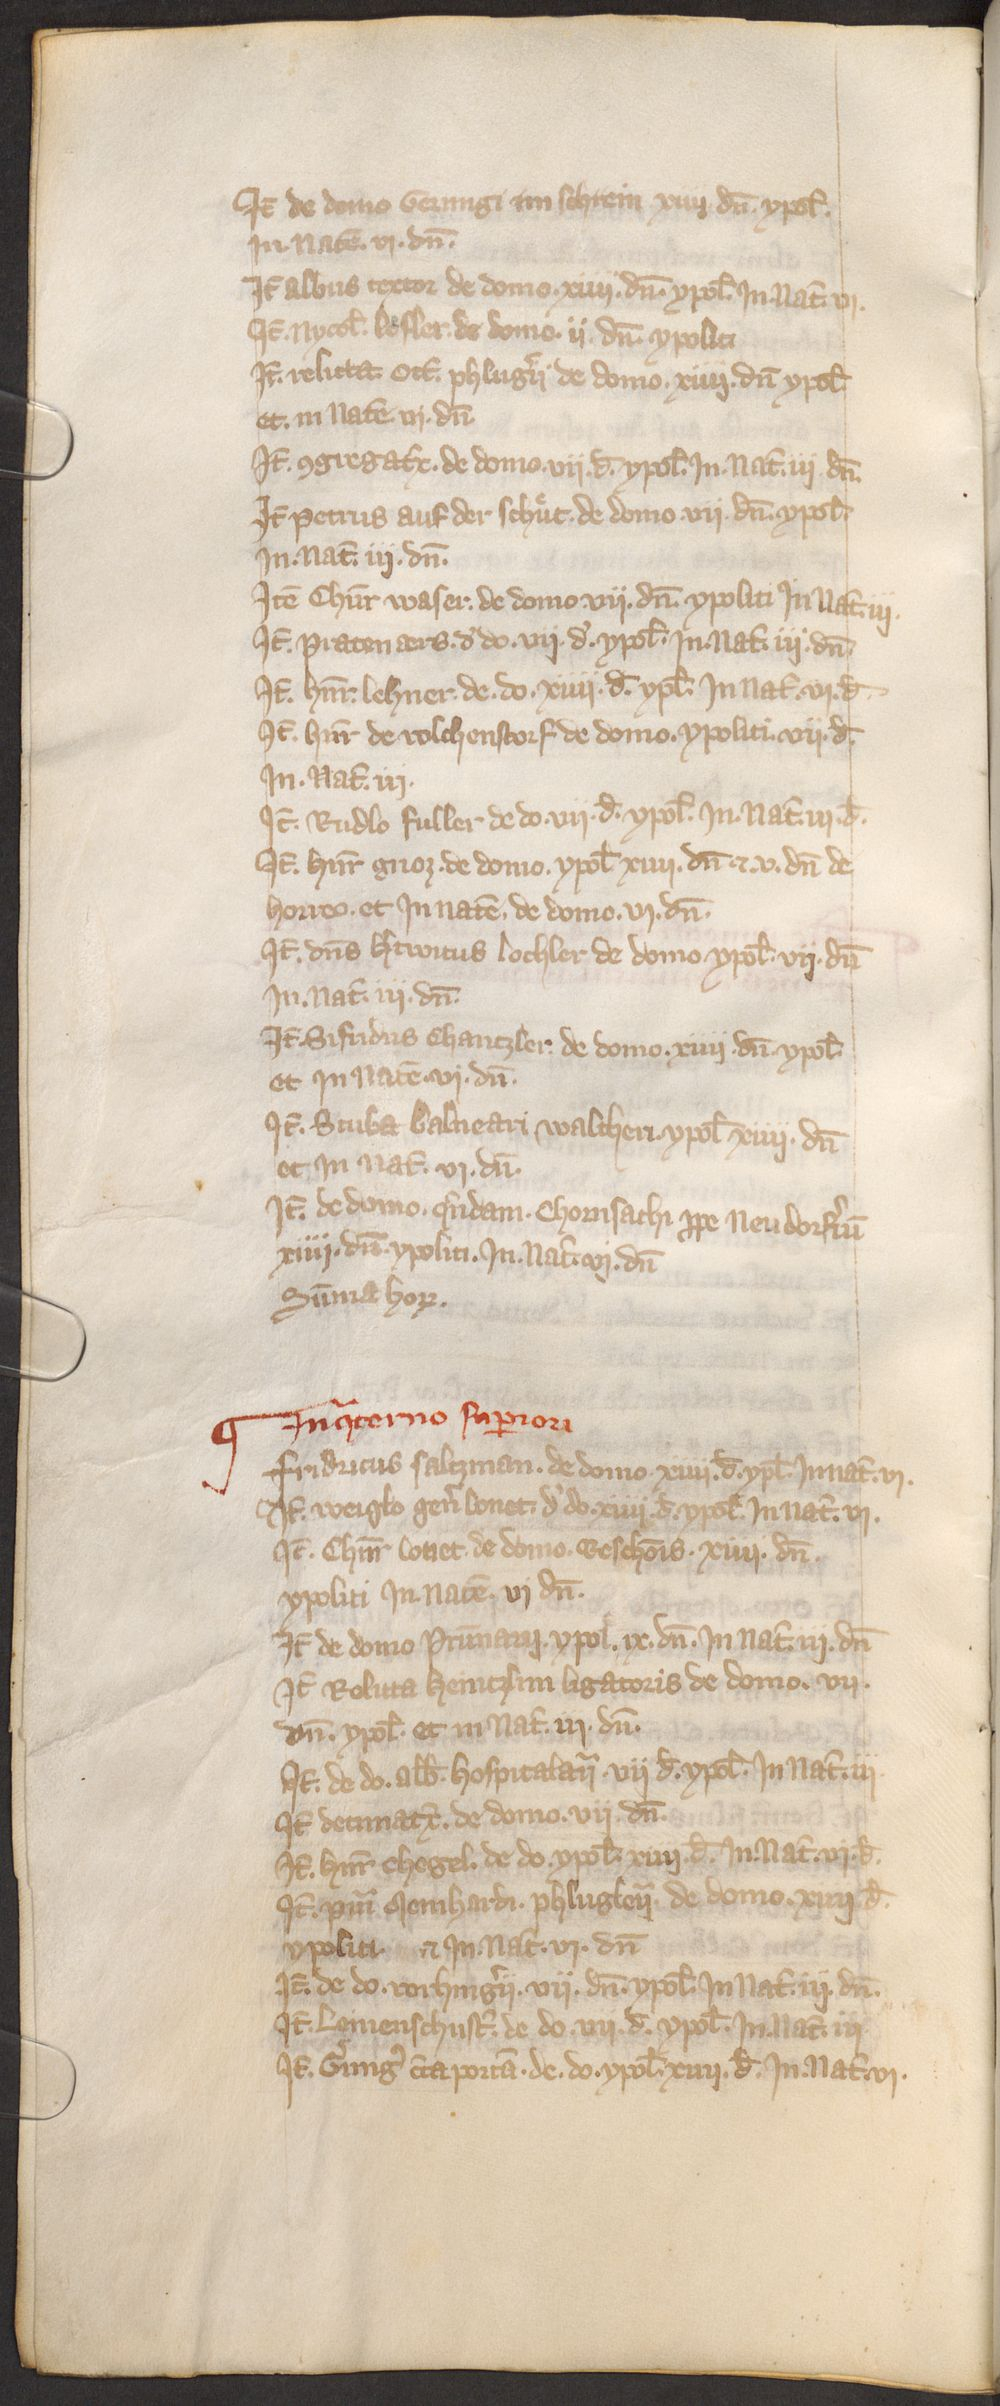 It̄ de domo Gerungi im schrein xiiij dn̄. ypol̄.
In. Nat̄e. vj. dn̄.
It̄ albus textor de domo. xiiij. dn̄. ypol̄. In. Nat̄. vj.
It̄. Nycol̄. lesler. de domo. ij. dn̄. ypoliti
It̄. relicta ott̄. phlug̾ij de domo. xiiij. dn̄ ypol̄
et. in Nat̄e. vj. dn̄
It̄. ꝯgregatx̄. de domo. vij. d̄. ypol̄. In. Nat̄. iij dn̄.
It̄ Petrus auf der schuͤt. de domo. vij. dn̄. ypol̄.
In. Nat̄. iij. dn̄.
Itē Chūr waser. de domo. vij. dn̄. ypoliti In Nat̄. iij.
It̄. Pratenaers. d̾ do. vij. d̾. ypol̄. In. Nat̄. iij. dn̄.
It̄. hnr̄. lehner. de. do. xiiij. d̄. ypl̄. In Nat̄. vj. d̄.
It̄. hnr̄ de wolchenstorf de domo. ypoliti. vij. d̄.
In. Nat̄. iij.
It̄. Rudlo fuller de do. vij. d̄. ypol̄. In. Nat̄. iij. d̄.
It̄. hnr̄ gnoz. de domo. ypol̄ xiiij. dn̄. ⁊. v. dn̄ de
horreo. et In natē. de domo. vj. dn̄.
It̄. dn̄s hertwicus lochler de domo ypol̄. vij. dn̄
In. Nat̄. iij. dn̄.
It̄. Sifridus Chantzler. de domo. xiiij. dn̄. ypol̄.
et In Natē. vj. dn̄.
It̄. Stuba balneari waltheri. ypol̄ xiiij. dn̄
et In Nat̄. vj. dn̄.
It̄. de domo. quidam. Chornsachi ꝓpe Neudorf̾ū
xiiij. dn̄. ypoliti. In. Nat̄. vj. dn̄
Sūma hoꝝ.
¶ In q̄terno superiori
Fridricus saltzman. de domo. xiiij. d̄. ypl̄. In nat̄. vj.
It̄. weiglo gen̄ lonet. d̾ do. xiiij. d̄. ypol̄. In Nat̄. vj.
It̄. Chnr̄ lonet. de domo. Reschōis. xiiij. dn̄.
ypoliti In. Natē. vj dn̄.
It̄ de domo Prūnarij. ypol̄. ix. dn̄. In Nat̄. iij. dn̄
It̄ Relicta heintzlini ligatoris de domo. vij.
dn̄. ypol̄. et in Nat̄. iij. dn̄.
It̄. de do. alb̄. hospitalarij. vij d̄. ypol̄. In Nat̄. iij.
It̄ decimatx̄. de domo. vij. dn̄.
It̄. hnr̄ chegel. de do. ypol̄. xiiij. d̄. In. Nat̄. vj. d̄.
It̄. pū Meinhardi. phlugleij. de domo. xiiij d̄.
ypoliti. ⁊ In. Nat̄. vj. dn̄
It̄. de do. vorhing̾ij. vij. dn̄. ypol̄. In Nat̄. iij. dn̄.
It̄. Leimenschust̾. de do. vij. d̄. ypol̄. In. Nat̄. iij
It̄. G̾ung̾ c̄ta portā. de. do. ypol̄. xiiij. d̄. In. Nat̄. vj.